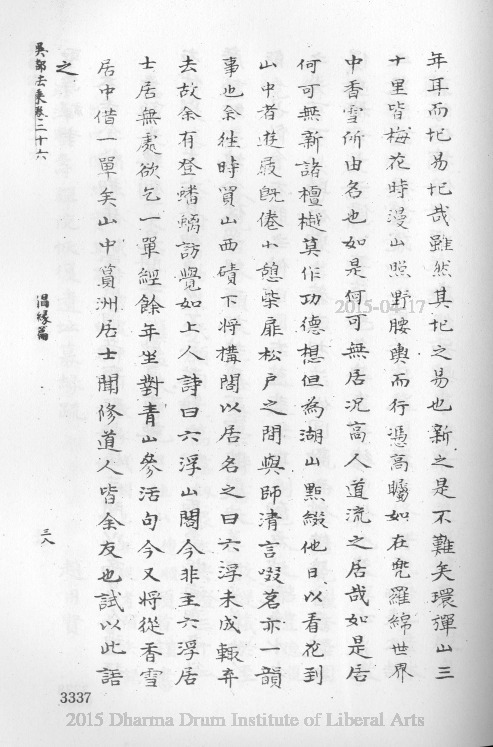 年耳而圮易圮哉雖然其圮之易也新之是不難矣環彈山三
十里皆梅花時漫山照野腰輿而行憑高矚如在兜羅綿世界
中香雪所由名也如是何可無居况高人道流之居哉如是居
何可無新諸檀樾莫作功德想但為湖山點綴他日以看花到
山中者遊屐既倦小憩柴扉松户之間與師清言啜茗亦一韻
事也余往時買山西磧下將構閣以居名之曰六浮未成輒弃
去故余有登蟠螭訪覺如上人詩曰六浮山閣今非主六浮居
士居無處欲乞一單經餘年坐對青山參活句今又將從香雪
居中借一單矣山中蕢洲居士聞修道人皆余友也試以此語
之
吳都法乘卷二十六
倡緣篇
三八
3337
2015-04-17
2015 Dharma Drum Institute of Liberal Arts